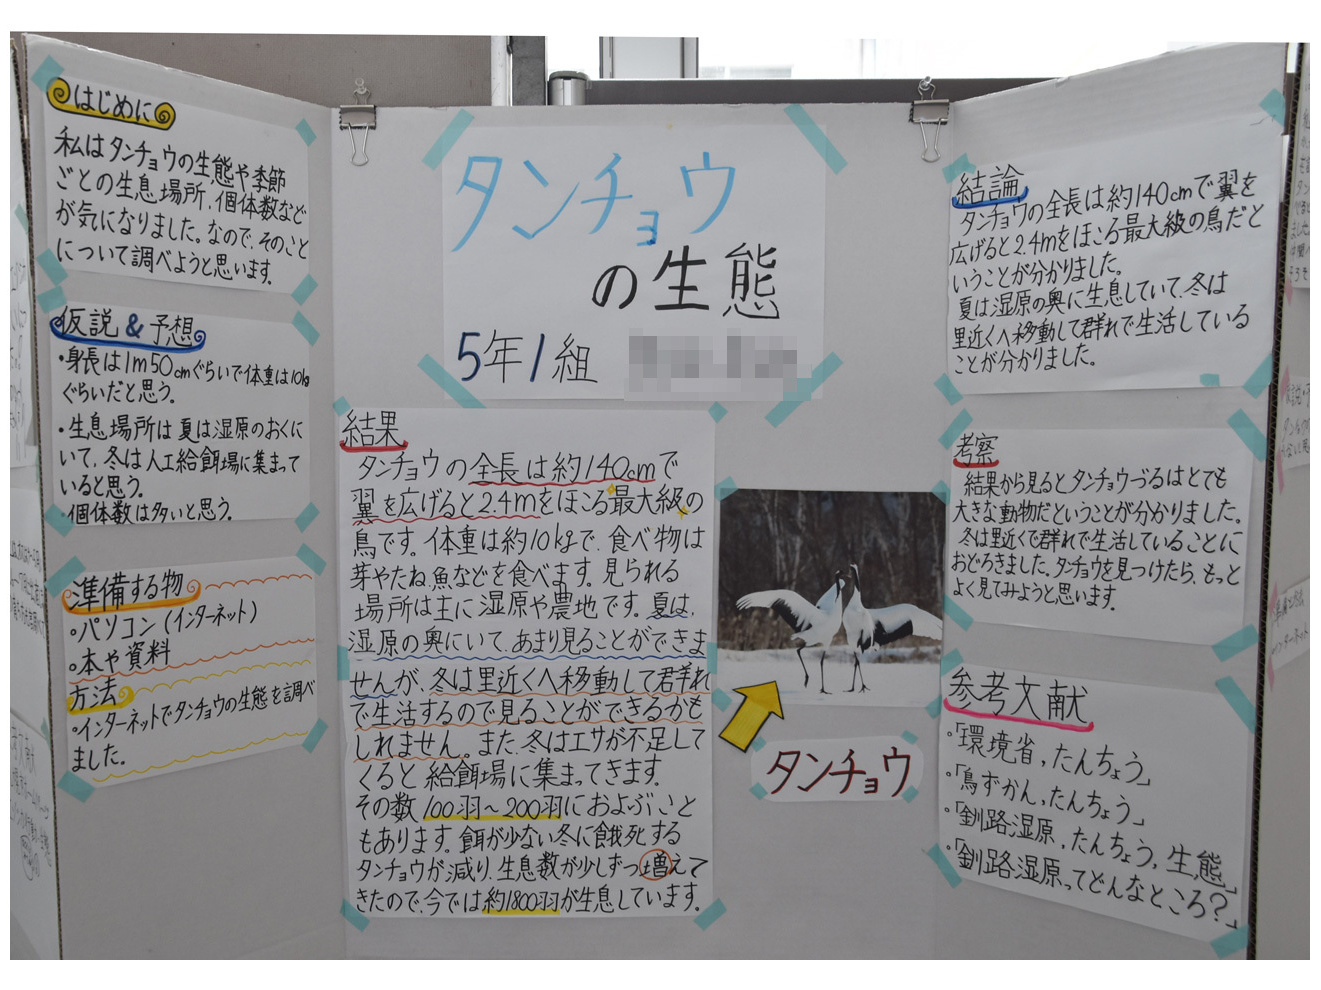 はじめに
私はタンチョウの生態や季節
ごとの生息場所、個体数など
が気になりました。なので、そのこと
について調べようと思います。
仮説&予想
・身長は1m50cmぐらいで体重は10kg
ぐらいだと思う。
・生息場所は夏は湿原のおくに
いて、冬は人工給餌場に集まって
いると思う。
・個体数は多いと思う。
準備する物
・パソコン(インターネット)
・本や資料
方法
・インターネットでタンチョウの生態を調べ
ました。
タンチョウ
の生態
5年1組
結果
タンチョウの全長は約140cmで
翼を広げると2.4mをほこる最大級の
鳥です。体重は約10kgで、食べ物は
芽やたね、魚などを食べます。見られる
場所は主に湿原や農地です。夏は、
湿原の奥にいて、あまり見ることができま
せんが、冬は里近くへ移動して群れ
で生活するので見ることができるかも
しれません。また、冬はエサが不足して
くると給餌場に集まってきます。
その数100羽~200羽におよぶこと
もあります。餌が少ない冬に餓死する
タンチョウが減り、生息数が少しずつ増えて
きたので、今では約1800羽が生息しています。
タンチョウ
結論
タンチョウの全長は約140cmで翼を
広げると2.4mをほこる最大級の鳥だと
いうことが分かりました。
夏は湿原の奥に生息していて、冬は
里近くへ移動して群れで生活している
ことが分かりました。
考察
結果から見るとタンチョウづるはとても
大きな動物だということが分かりました。
冬は里近くで群れで生活していることに
おどろきました。タンチョウを見つけたら、もっと
よく見てみようと思います。
参考文献
・「環境省,たんちょう」
・「鳥ずかん,たんちょう」
・「釧路湿原,たんちょう,生態」
・「釧路湿原ってどんなところ?」